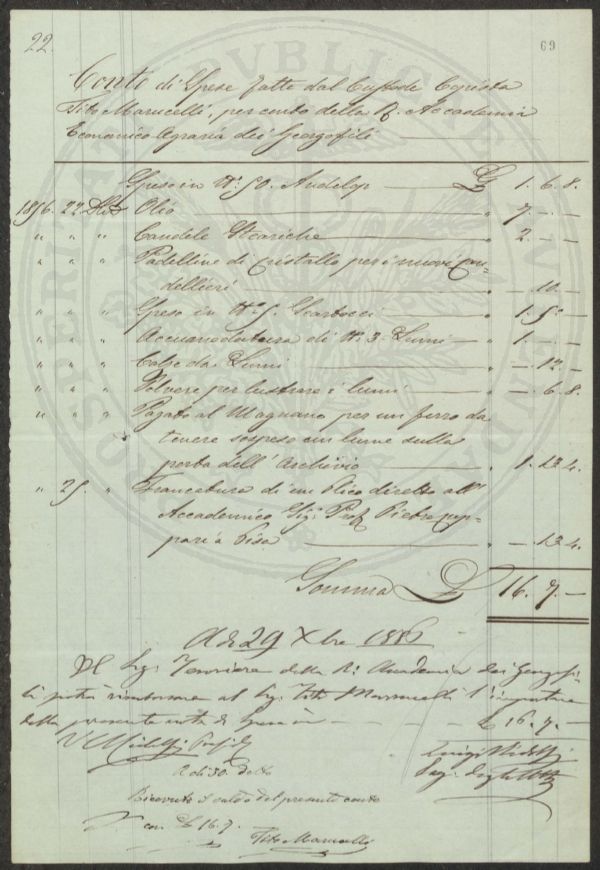 22. 69
Conto di Spese fatte dal Custode Copista
Tito Marucelli, per conto della R. Accademia
Economico Agraria dei Georgofili
Speso in N.° 50. £ 1. 6. 8.
1856. 22. Olio " 7. - -
" " " Candele Steariche " 2. - -
" " " Padelline di cristallo per i nuovi Can-
dellieri " - 10. -
" " " Speso in N.° 5. Scartocci " 1. 5. -
" " " Accomodatura di N.° 3. Lumi " 1. - -
" " " Calze da Lumi " - 12. -
" " " Polvere per lustrare i lumi " - 6. 8.
" " " Pagato al Magnano per un ferro da
tenere sospeso un lume sulla
porta dell'Archivio " 1. 13. 4.
" 25. " Francatura di un Plico diretto all'
Accademico Sig. Prof. Pietro Cup-
pari a Pisa " - 13. 4.
Somma £ 16. 7. -
A dì 29 Xbre 1856
Il Sig. Tesoriere della R. Accademia dei Georgofi-
li potrà rimborsare al Sig. Tito Marrucelli l'importare
della presente nota di spese in £ 16. 7. -
Ridolfi Presid.
Luigi Ridolfi
A dì 30. detto
Ricevuto il saldo del presente conto
con £ 16. 7.
Tito Marucelli
PROSPERITATI PVBLICAE AVGENDAE